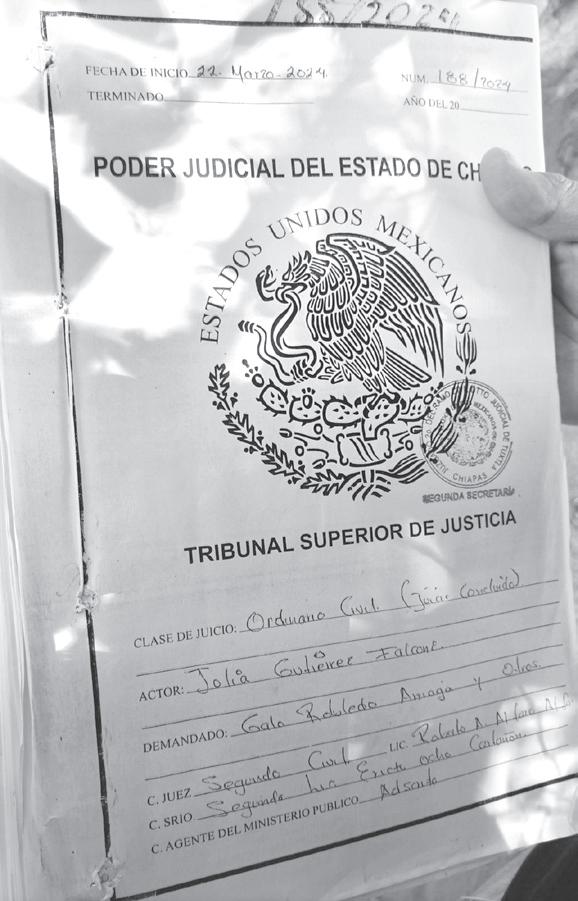 188/2024
FECHA DE INICIO 22. Marzo-2024.
NUM. 188/2024
TERMINADO
AÑO DEL 20
PODER JUDICIAL DEL ESTADO DE CH
ESTADOS UNIDOS MEXICANOS
DEL RAMO JUDICIAL DE TUXTLA
MEXICANOS
CHIAPAS
SEGUNDA SECRETARÍA
TRIBUNAL SUPERIOR DE JUSTICIA
CLASE DE JUICIO: Ordinario Civil (Juicio Concluido)
ACTOR: Jolia Gutiérrez Falcone.
DEMANDADO: Galo Robledo y Otros.
C. JUEZ Segundo Civil LIC. Roberto A. Alfaro
C. SRIO Segunda Lic Erick Ochoa
C. AGENTE DEL MINISTERIO PUBLICO Adscrito